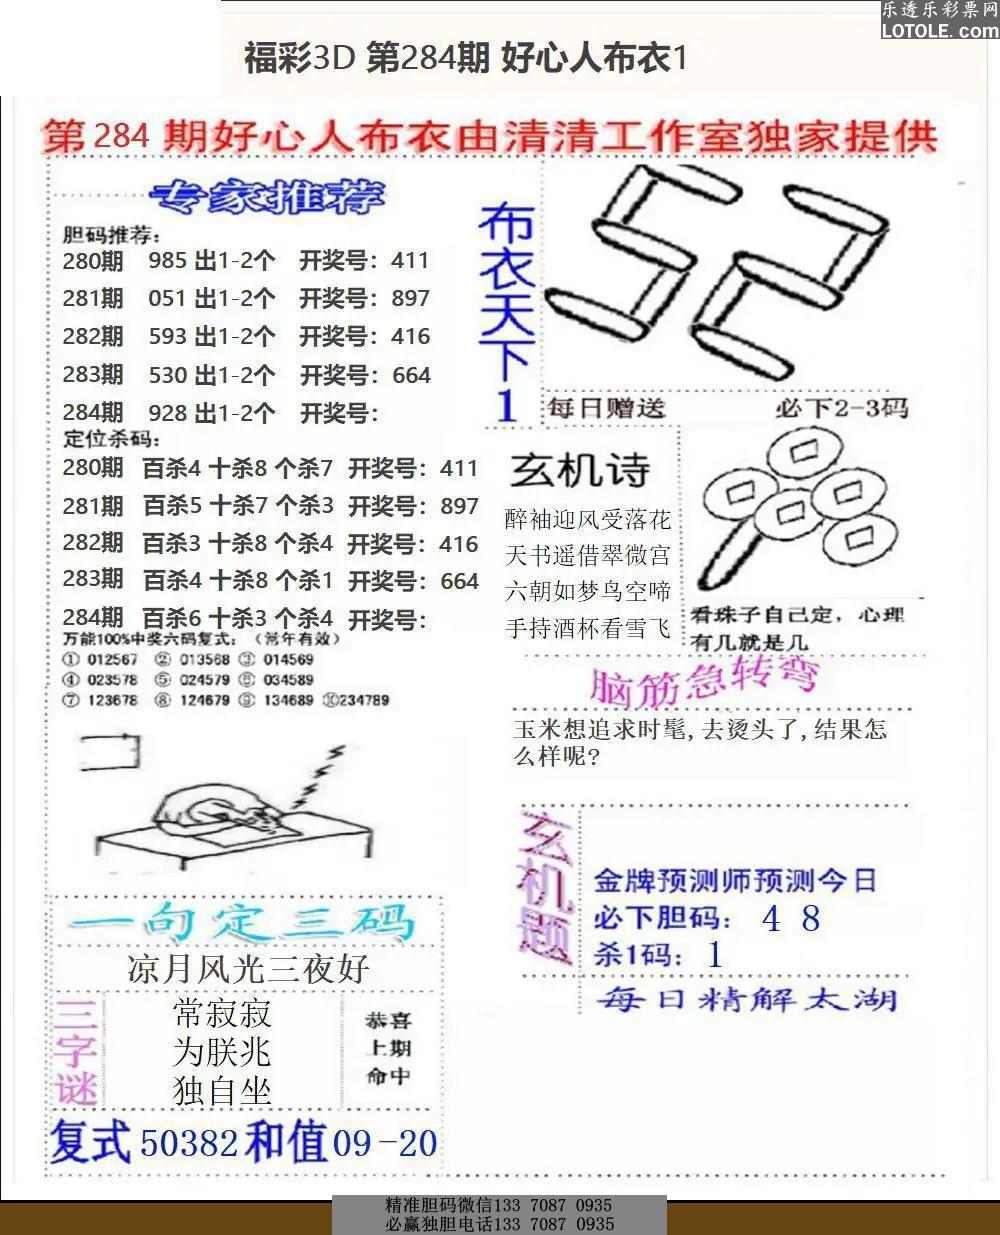 乐透乐彩票网
LOTOLE. com
福彩3D 第284期 好心人布衣1
第 284 期好心人布衣由清清工作室独家提供
专家推荐
胆码推荐：
280期 985 出1-2个 开奖号：411
281期 051 出1-2个 开奖号：897
282期 593 出1-2个 开奖号：416
283期 530 出1-2个 开奖号：664
284期 928 出1-2个 开奖号：
定位杀码：
280期 百杀4 十杀8 个杀7 开奖号：411
281期 百杀5 十杀7 个杀3 开奖号：897
282期 百杀3 十杀8 个杀4 开奖号：416
283期 百杀4 十杀8 个杀1 开奖号：664
284期 百杀6 十杀3 个杀4 开奖号：
万能100%中奖六码复式：（常年有效）
① 012567 ② 013568 ③ 014569
④ 023578 ⑤ 024579 ⑥ 034589
⑦ 123678 ⑧ 124679 ⑨ 134689 ⑩234789
布衣天下1
每日赠送 必下2-3码
玄机诗
醉袖迎风受落花
天书遥借翠微宫
六朝如梦鸟空啼
手持酒杯看雪飞
看珠子自己定，心理
有几就是几
脑筋急转弯
玉米想追求时髦,去烫头了,结果怎
么样呢?
玄机题
金牌预测师预测今日
必下胆码： 4 8
杀1码： 1
每日精解太湖
一句定三码
凉月风光三夜好
三字谜
常寂寂
为朕兆
独自坐
恭喜
上期
命中
复式 50382 和值 09-20
精准胆码微信133 7087 0935
必赢独胆电话133 7087 0935